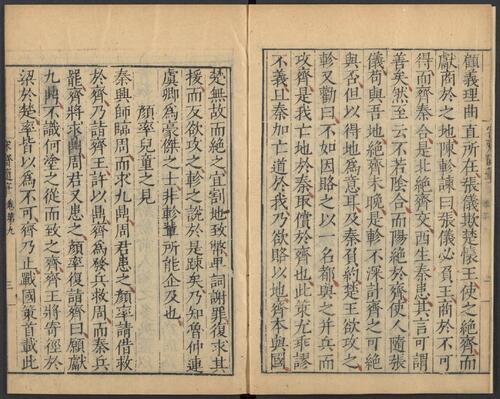 顧義理曲直所在張儀欺楚懷王使之絶齊而
獻商於之地陳軫諫曰張儀必負王商於不可
得而齊秦合是北絶齊交西生秦患其言可謂
善矣然至云不若陰合而陽絶於齊使人隨張
儀苟與吾地絶齊未晚是軫不深計齊之可絶
與否但以得地為意耳及秦負約楚王欲攻之
軫又勸曰不如因賂之以一名都與之并兵而
攻齊是我亡地於秦取償於齊也此策尤乖謬
不義且秦加亡道於我乃欲賂以地齊本與國
楚無故而絶之宜割地致幣卑詞謝罪復求其
援而反欲攻之軫之說於是踈矣乃知魯仲連
虞卿為豪傑之士非軫輩所能企及也
顔率兒童之見
秦興師臨周而求九鼎周君患之顔率請借救
於齊乃詣齊王許以鼎齊為發兵救周而秦兵
罷齊將求鼎周君又患之顔率復詣齊曰願獻
九鼎不識何塗之從而致之齊齊王將寄徑於
梁於楚率皆以為不可齊乃止戰國策首載此